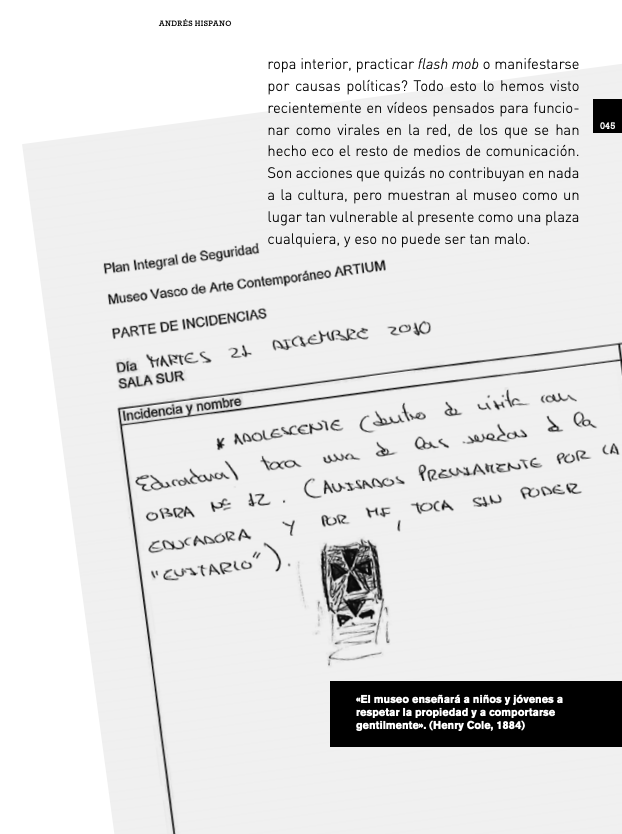 ANDRÉS HISPANO
ropa interior, practicar flash mob o manifestarse
por causas políticas? Todo esto lo hemos visto
recientemente en vídeos pensados para funcio-
nar como virales en la red, de los que se han
hecho eco el resto de medios de comunicación.
Son acciones que quizás no contribuyan en nada
a la cultura, pero muestran al museo como un
lugar tan vulnerable al presente como una plaza
cualquiera, y eso no puede ser tan malo.
045
Plan Integral de Seguridad
Museo Vasco de Arte Contemporáneo ARTIUM
PARTE DE INCIDENCIAS
Día MARTES 21 DICIEMBRE 2010
SALA SUR
Incidencia y nombre
* ADOLESCENTE (dentro de visita con
Educadora) toca una de las ruedas de la
OBRA Nº 12. (AVISADOS PREVIAMENTE POR LA
EDUCADORA Y POR MI, TOCA SIN PODER
"EVITARLO").
«El museo enseñará a niños y jóvenes a
respetar la propiedad y a comportarse
gentilmente». (Henry Cole, 1884)